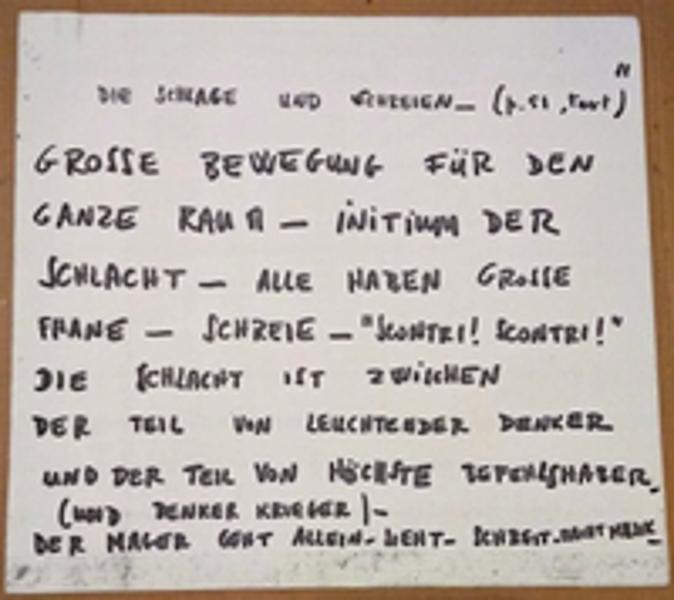 "
DIE SCHLAGE UND SCHREIEN_ (p. 51, Text)
GROSSE BEWEGUNG FÜR DEN
GANZE RAUM – INITIUM DER
SCHLACHT – ALLE HABEN GROSSE
FHANE – SCHREIE – "SCONTRI! SCONTRI!"
DIE SCHLACHT IST ZWISCHEN
DER TEIL VON LEUCHTENDER DENKER
UND DER TEIL VON HÖCHSTE BEFEHLSHABER_
(UND DENKER KRIEGER)–
DER MAGER GEHT ALLEIN– SIEHT– SCHREIT–